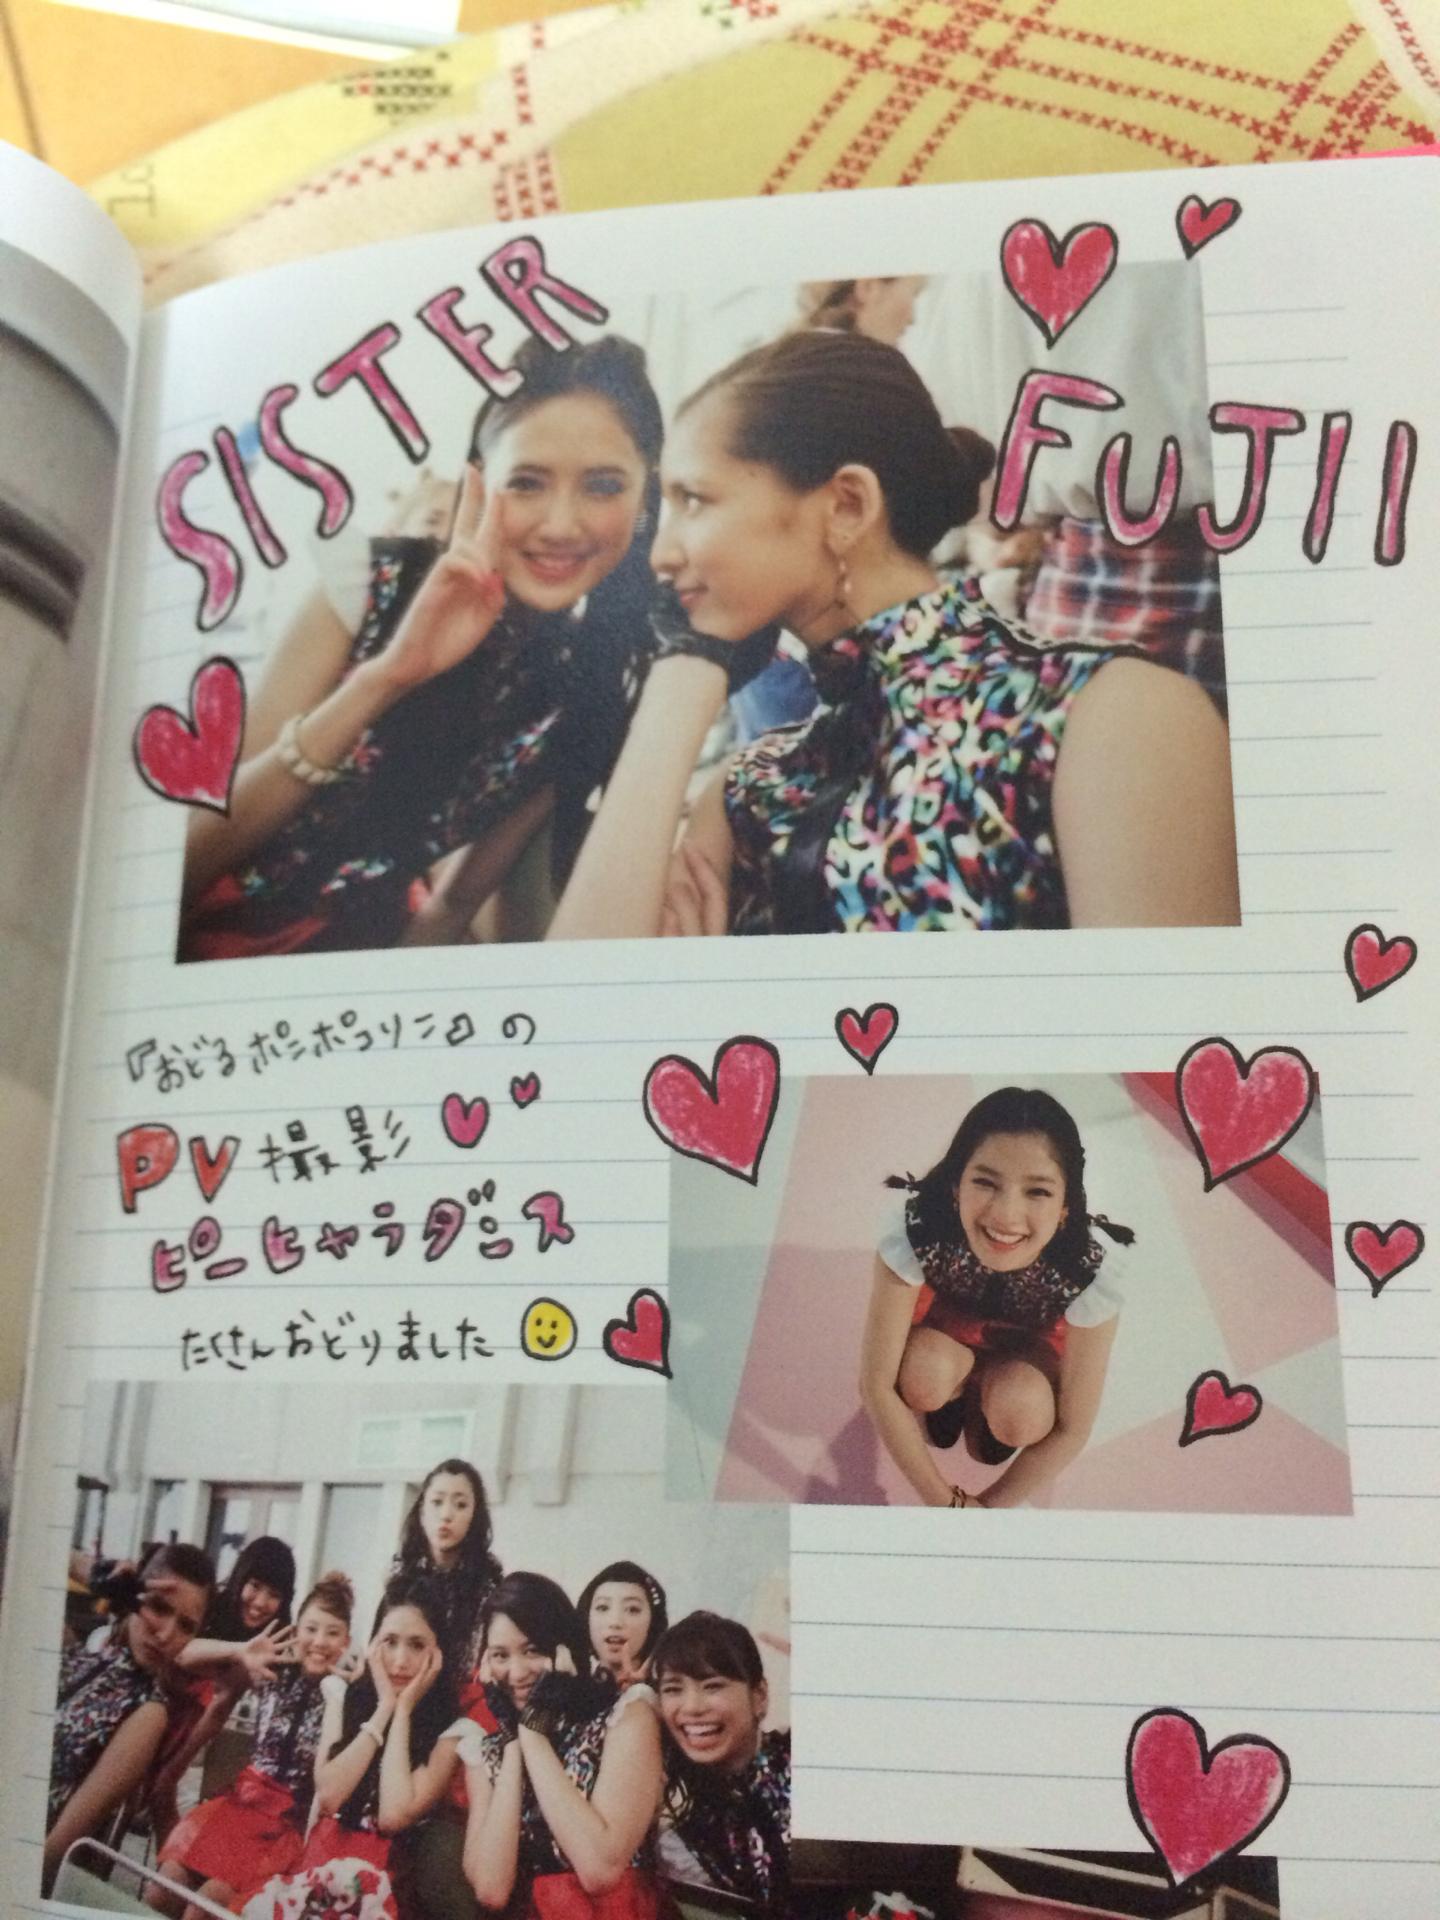 SISTER
FUJII
『おどるポンポコリン』の
PV撮影
ピーヒャラダンス
たくさんおどりました